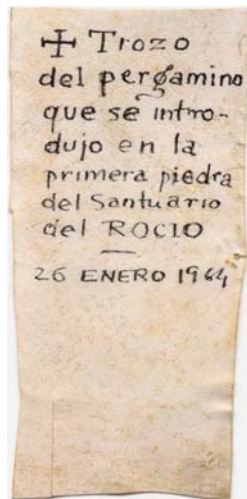 ✠ Trozo
del pergamino
que se intro-
dujo en la
primera piedra
del Santuario
del ROCIO
26 ENERO 1964